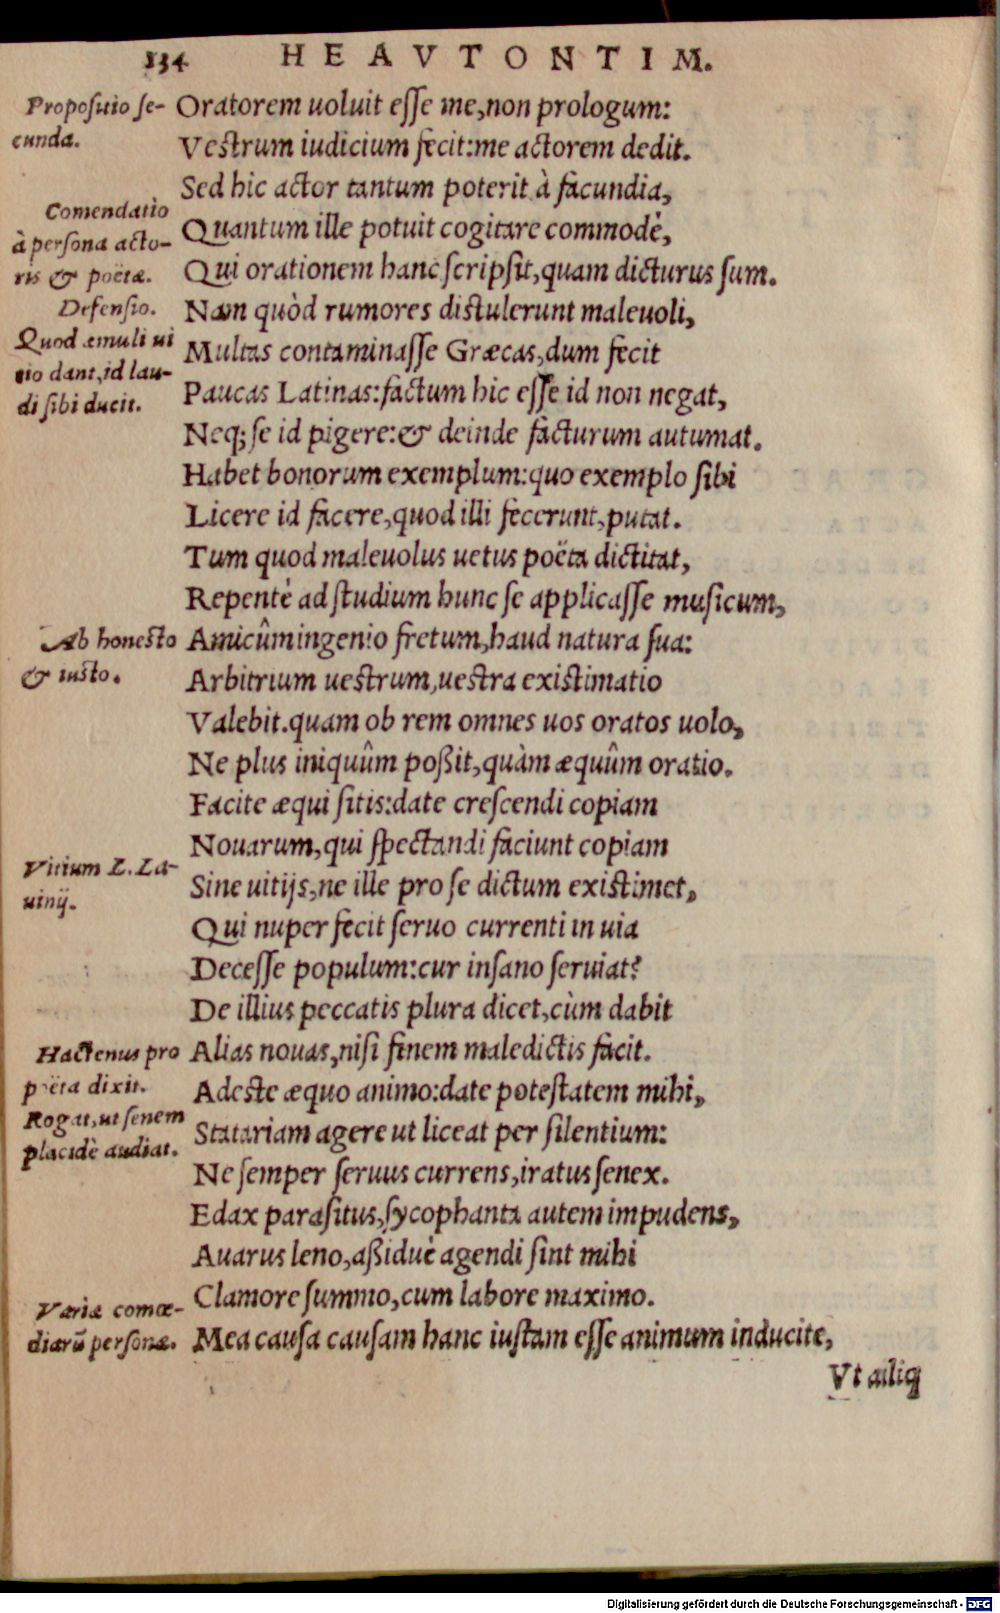 134 HEAVTONTIM.
Propositio se-
cunda.
Oratorem uoluit esse me, non prologum:
Vestrum iudicium fecit: me actorem dedit.
Sed hic actor tantum poterit à facundia,
Comendatio
à persona acto-
ris & poëtæ.
Quantum ille potuit cogitare commodè,
Qui orationem hanc scripsit, quam dicturus sum.
Defensio.
Quod æmuli ui
tio dant, id lau-
di sibi ducit.
Nam quòd rumores distulerunt maleuoli,
Multas contaminasse Græcas, dum fecit
Paucas Latinas: factum hic esse id non negat,
Neq; se id pigere: & deinde facturum autumat.
Habet bonorum exemplum: quo exemplo sibi
Licere id facere, quod illi fecerunt, putat.
Tum quod maleuolus uetus poëta dictitat,
Repentè ad studium hunc se applicasse musicum,
Ab honesto
& iusto.
Amicûm ingenio fretum, haud natura sua:
Arbitrium uestrum, uestra existimatio
Valebit. quam ob rem omnes uos oratos uolo,
Ne plus iniquûm poßit, quàm æquûm oratio.
Facite æqui sitis: date crescendi copiam
Nouarum, qui spectandi faciunt copiam
Vitium L. La-
uinij.
Sine uitijs, ne ille pro se dictum existimet,
Qui nuper fecit seruo currenti in uia
Decesse populum: cur insano seruiat?
De illius peccatis plura dicet, cùm dabit
Hactenus pro
poëta dixit.
Rogat, ut senem
placidè audiat.
Alias nouas, nisi finem maledictis facit.
Adeste æquo animo: date potestatem mihi,
Statariam agere ut liceat per silentium:
Ne semper seruus currens, iratus senex.
Edax parasitus, sycophanta autem impudens,
Auarus leno, aßiduè agendi sint mihi
Variæ comœ-
diarũ personæ.
Clamore summo, cum labore maximo.
Mea causa causam hanc iustam esse animum inducite,
Vt aliq
Digitalisierung gefördert durch die Deutsche Forschungsgemeinschaft - DFG